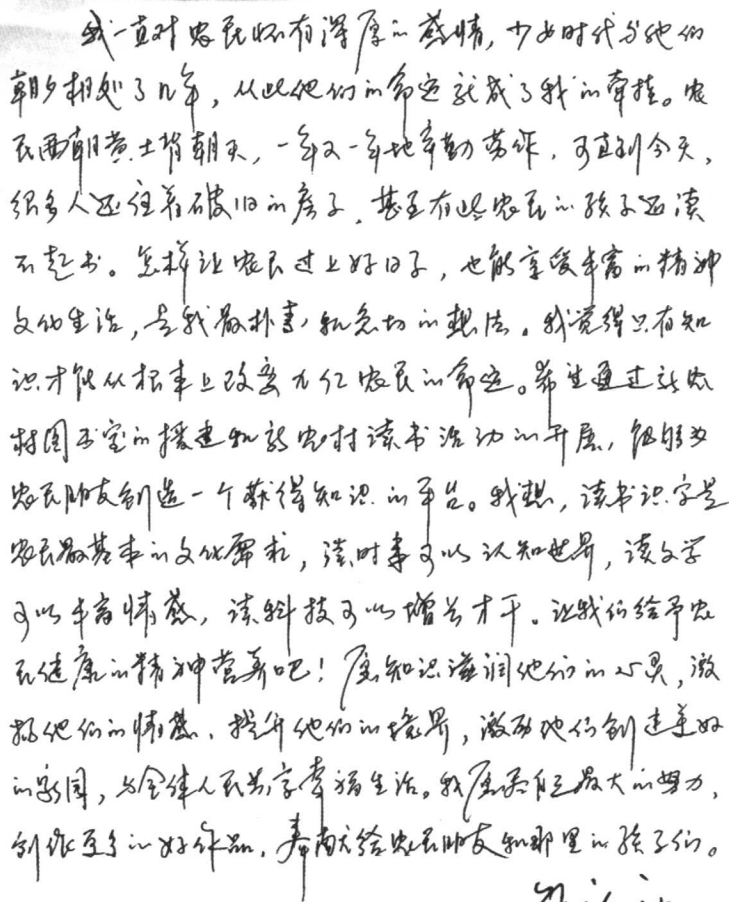 我一直对农民怀有深厚的感情，少女时代与他们
朝夕相处了几年，从此他们的命运就成了我的牵挂。农
民面朝黄土背朝天，一年又一年地辛勤劳作，可直到今天，
很多人还住着破旧的房子，甚至有些农民的孩子还读
不起书。怎样让农民过上好日子，也能享受丰富的精神
文化生活，是我最朴素、和急切的想法。我觉得只有知
识才能从根本上改变九亿农民的命运。希望通过新农
村图书室的援建和新农村读书活动的开展，能够为
农民朋友创造一个获得知识的平台。我想，读书识字是
农民最基本的文化需求，读时事可以认知世界，读文学
可以丰富情感，读科技可以增长才干。让我们给予农
民健康的精神营养吧！愿知识滋润他们的心灵，激
扬他们的情感，提升他们的境界，激励他们创建美好
的家园，与全体人民共享幸福生活。我愿尽自己最大的努力，
创作更多的好作品，奉献给农民朋友和那里的孩子们。